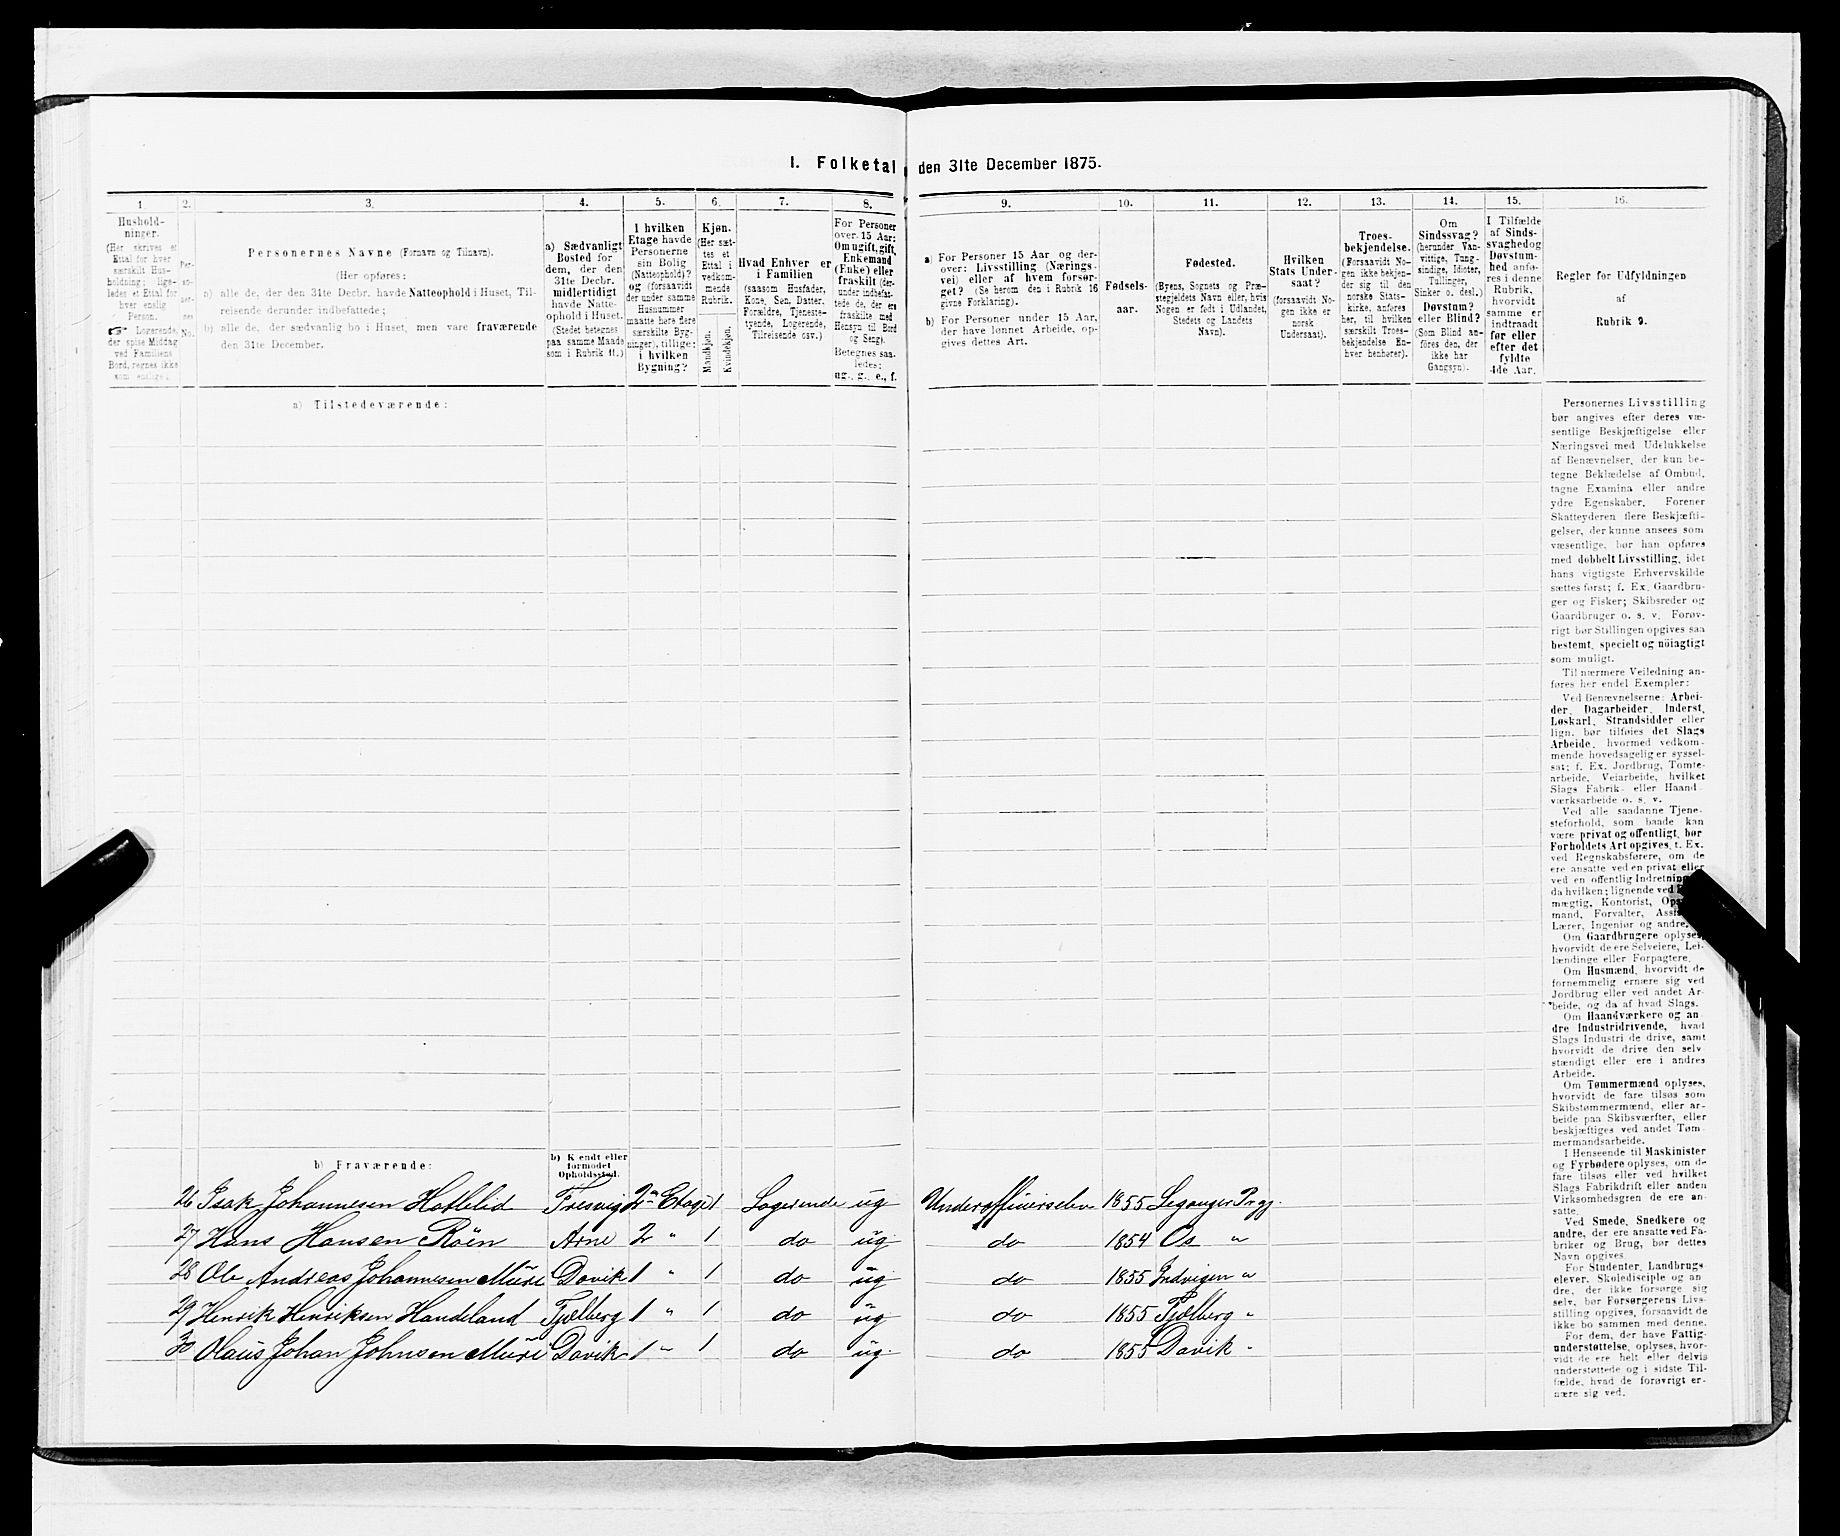 I. Folketal den 31te December 1875.
1.
Hushold-
ninger.
(Her skrives et
Ettal for hver
særskilt Hus-
holdning; lige-
ledes et Ettal for
hver enslig
Person.
☞ Logerende,
der spise Middag
ved Familiens
Bord, regnes ikke
som enslige).
2.
Per-
son-
No.
3.
Personernes Navne (Fornavn og Tilnavn).
(Her opføres:
a) alle de, der den 31te Decbr. havde Natteophold i Huset, Til-
reisende derunder indbefattede;
b) alle de, der sædvanlig bo i Huset, men vare fraværende
den 31te December.
4.
a) Sædvanligt
Bosted for
dem, der den
31te Decbr.
midlertidigt
havde Natte-
ophold i Huset.
(Stedet betegnes
paa samme Maade
som i Rubrik 11.)
5.
I hvilken
Etage havde
Personerne
sin Bolig
(Natteophold)?
og (forsaavidt
der under samme
Husnummer
maatte høre flere
særskilte Byg-
ninger), tillige:
i hvilken
Bygning?
6.
Kjøn.
(Her sæt-
tes et
Ettal i
vedkom-
mende
Rubrik.
Mandkjøn.
Kvindekjøn.
7.
Hvad Enhver er
i Familien
(saasom Husfader,
Kone, Søn, Datter,
Forældre, Tjeneste-
tyende, Logerende,
Tilreisende osv.)
8.
For Personer
over 15 Aar:
Om ugift, gift,
Enkemand
(Enke) eller
fraskilt (der-
under indbefat-
tede de, der ere
fraskilte med
Hensyn til Bord
og Seng).
Betegnes saa-
ledes:
ug., g., e., f.
9.
a) For Personer 15 Aar og der-
over: Livsstilling (Nærings-
vei) eller af hvem forsør-
get? (Se herom den i Rubrik 16
givne Forklaring).
b) For Personer under 15 Aar,
der have lønnet Arbeide, op-
gives dettes Art.
10.
Fødsels-
aar.
11.
Fødested.
(Byens, Sognets og Præ-
stegjeldets Navn eller, hvis
Nogen er født i Udlandet,
Stedets og Landets
Navn).
12.
Hvilken
Stats Under-
saat?
(forsaavidt No-
gen ikke er
norsk
Undersaat).
13.
Troes-
bekjendelse.
(Forsaavidt No-
gen ikke bekjen-
der sig til den
norske Stats-
kirke, anføres
her, til hvilken
særskilt Troes-
bekjendelse En-
hver henhører).
14.
Om
Sindssvag?
(herunder Van-
vittige, Tung-
sindige, Idioter,
Tullinger,
Sinker o. desl.)
Døvstum?
eller Blind?
(Som Blind an-
føres den, der
ikke har
Gangsyn).
15.
I Tilfælde
af Sinds-
svaghed og
Døvstum-
hed anfø-
res i denne
Rubrik,
hvorvidt
samme er
indtraadt
før eller
efter det
fyldte
4de Aar.
16.
Regler for Udfyldningen
af
Rubrik 9.
a) Tilstedeværende:
Personernes Livsstilling
bør angives efter deres væ-
sentlige Beskjæftigelse eller
Næringsvei med Udelukkelse
af Benævnelser, der kun be-
tegne Beklædelse af Ombud,
tagne Examina eller andre
ydre Egenskaber. Forener
Skatteyderen flere Beskjæfti-
gelser, der kunne ansees som
væsentlige, bør han opføres
med dobbelt Livsstilling, idet
hans vigtigste Erhvervskilde
sættes først; f. Ex. Gaardbru-
ger og Fisker; Skibsreder og
Gaardbruger o. s. v. Forøv-
rigt bør Stillingen opgives saa
bestemt, specielt og nöiagtigt
som muligt.
Til nærmere Veiledning an-
føres her endel Exempler:
Ved Benævnelserne: Arbei-
der, Dagarbeider, Inderst,
Løskarl, Strandsidder eller
lign. bør tilføies det Slags
Arbeide, hvormed vedkom-
mende hovedsagelig er syssel-
sat; f. Ex. Jordbrug, Tomte-
arbeide, Veiarbeide, hvilket
Slags Fabrik- eller Haand-
værksarbeide o. s. v.
Ved alle saadanne Tjene-
steforhold, som baade kan
være privat og offentligt, bør
Forholdets Art opgives, f. Ex.
ved Regnskabsførere, om de
ere ansatte ved en privat eller
ved en offentlig Indretning
da hvilken; lignende ved
mægtig, Kontorist,
mand, Forvalter,
Lærer, Ingeniør og andre.
Om Gaardbrugere oplyses,
hvorvidt de ere Selveiere, Lei-
lændinge eller Forpagtere.
Om Husmænd, hvorvidt de
fornemmelig ernære sig ved
Jordbrug eller ved andet Ar-
beide, og da af hvad Slags.
Om Haandværkere og an-
dre Industridrivende, hvad
Slags Industri de drive, samt
hvorvidt de drive den selv-
stændigt eller ere i andres
Arbeide.
Om Tømmermænd oplyses,
hvorvidt de fare tilsøs som
Skibstømmermænd, eller ar-
beide paa Skibsværfter, eller
beskjæftiges ved andet Tøm-
mermandsarbeide.
I Henseende til Maskinister
og Fyrbødere oplyses, om de
fare tilsøs eller ved hvilket
Slags Fabrikdrift eller anden
Virksomhedsgren de ere an-
satte.
Ved Smede, Snedkere og
andre, der ere ansatte ved Fa-
briker og Brug, bør dettes
Navn opgives.
For Studenter, Landbrugs-
elever, Skoledisciple og an-
dre, der ikke forsørge sig
selv, bør Forsørgerens Livs-
stilling opgives, forsaavidt de
ikke bo sammen med denne.
For dem, der have Fattig-
understøttelse, oplyses, hvor-
vidt de ere helt eller delvis
understøttede og i sidste Til-
fælde, hvad de forøvrigt er-
nære sig ved.
b) Fraværende:
b) Kjendt eller
formodet
Opholdssted.
26 Isak Johannesen Hatlelid Fresvig 2n Etage 1 Logerende ug Underofficerselev 1855 Leganger Prgj
27 Hans Hansen Röen Arne 2 " 1 do ug do 1854 Os "
28 Ole Andreas Johannesen Müri Davik 1 " 1 do ug do 1855 Indvigen "
29 Henrik Henriksen Handeland Fjelberg 1 " 1 do ug do 1855 Fjelberg "
30 Olaüs Johan Johnsen Müri Davik 1 " 1 do ug. do 1855 Davik "